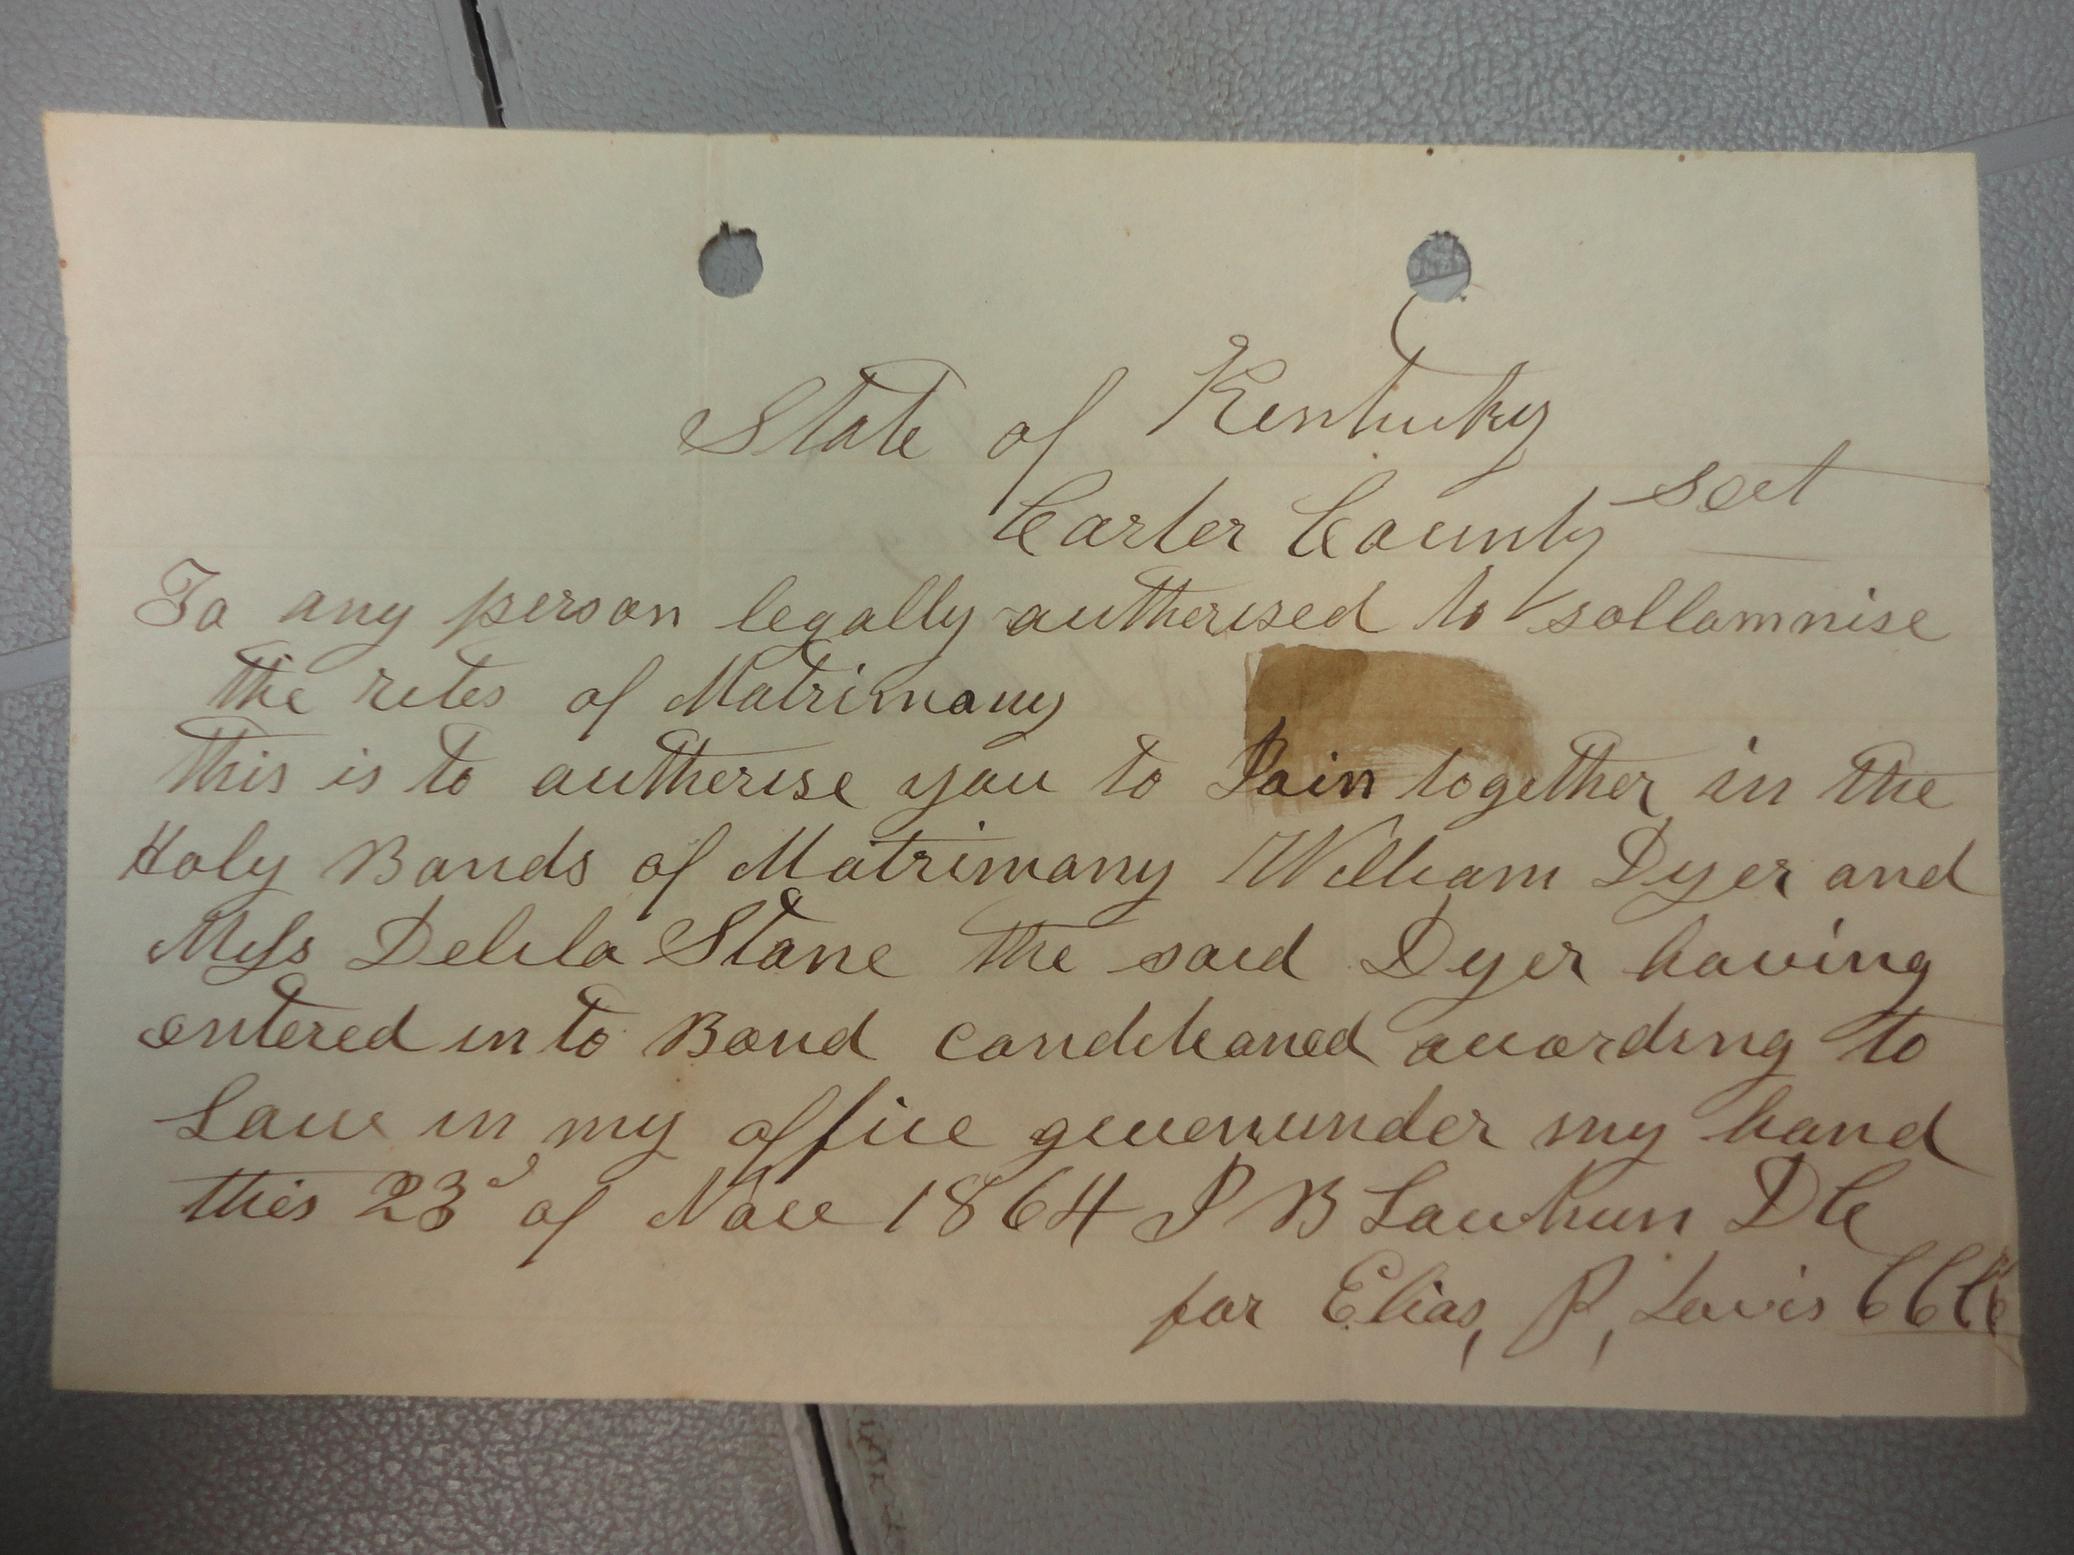 State of Kentucky
Carter County Sect
To any person legally autherised to sollomnise
the rites of Matrimony
this is to autherise you to Join together in the
Holy Bonds of Matrimony William Dyer and
Miss Delila Stone the said Dyer having
entered into Bond conditioned according to
Law in my office given under my hand
this 23d of Nove 1864 J B Lawhun DC
for Elias, P, Davis CCCC